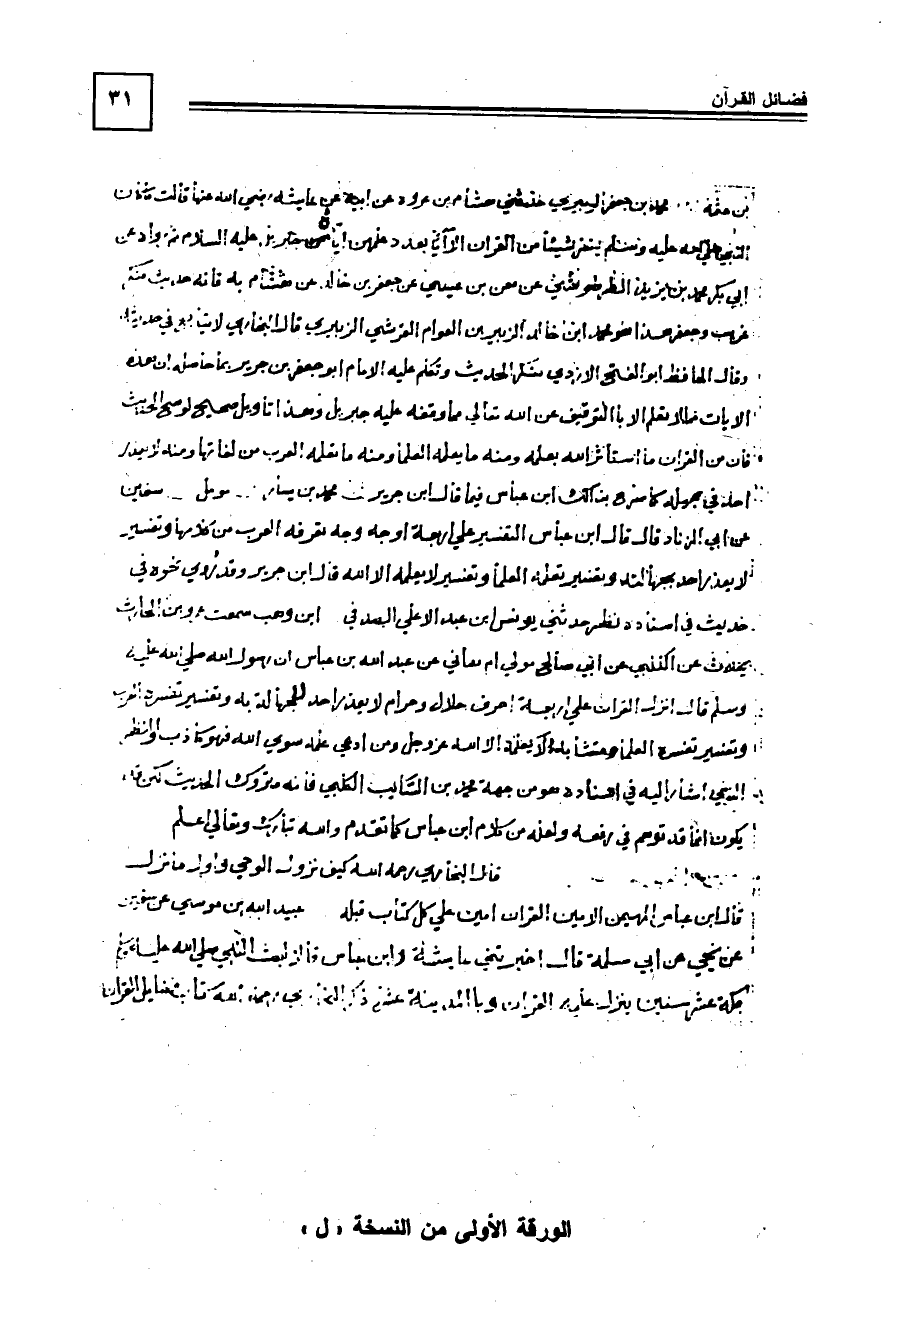 فضائل القرآن
٣١
محمد بن جعفر الزبيري حدثني هشام بن عروه عن ابيه عن عايشه رضي الله عنها قالت ما كان
النبي صلى الله عليه وسلم يفسر شيئا من القران الا آيا بعدد علمهن اياه جبريل عليه السلام ثم رواه عن
ابي بكر محمد بن يزيد الطرطوسي عن معن بن عيسي عن جعفر بن خالد عن هشام به فانه حديث منكر
غريب وجعفر هذا هو محمد ابن خالد الزبير بن العوام القرشي الزبيري قال البخاري لا يتابع في حديثه
وقال الحافظ ابو الفتح الازدي منكر الحديث وتكلم عليه الامام ابو جعفر بن جرير بما حاصله ان هذه
الايات مما لا يعلم الا بالتوقيف عن الله تعالى مما وقفه عليه جبريل وهذا تاويل صحيح لو صح الحديث
فان من القران ما استأثر الله بعلمه ومنه ما يعلمه العلمأ ومنه ما تعلمه العرب من لغاتها ومنه لا يعذر
احد في جهله كما صرح بذلك ابن عباس فيما قال ابن جرير محمد بن بشار مومل سفين
عن ابي الزناد قال قال ابن عباس التفسير علي اربعة اوجه وجه تعرفه العرب من كلامها وتفسير
لا يعذر احد بجهالته وتفسير تعلمه العلمأ وتفسير لا يعلمه الا الله قال ابن جرير وقد روي نحوه في
حديث في اسناده نظر حدثني يونس ابن عبد الاعلي الصدفي ابن وهب سمعت عمرو بن الحارث
يحدث عن الكلبي عن ابي صالح مولي ام هاني عن عبد الله بن عباس ان رسول الله صلى الله عليه
وسلم قال انزل القران علي اربعة احرف حلال وحرام لا يعذر احد للجهالة به وتفسير تفسره العرب
وتفسير تفسره العلمأ ومتشابه لا يعلمه الا الله عز وجل ومن ادعي علمه سوي الله فهو كاذب والنظر
الذي اشار اليه في اسناده هو من جهة محمد بن السايب الكلبي فانه متروك الحديث لكن قد
يكون انما قد توهم في رفعه ولعله من كلام ابن عباس كما تقدم والله تبارك وتعالي اعلم
قال البخاري رحمه الله كيف نزول الوحي واول ما نزل
قال ابن عباس المهيمن الامين القران امين علي كل كتاب قبله عبيد الله بن موسي عن شيبان
عن يحيي عن ابي سلمة قال اخبرتني عايشة وابن عباس قالا لبث النبي صلى الله عليه وسلم
بمكة عشر سنين ينزل عليه القران وبالمدينة عشرا ذكر البخاري رحمه الله كتاب فضايل القران
الورقة الأولى من النسخة « ل »